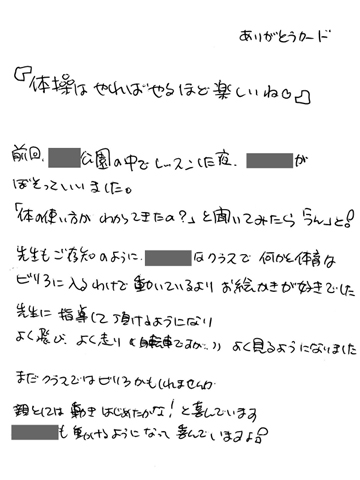 ありがとうカード
『体操は やればやるほど 楽しいね。』
前回、公園の中で レッスンした夜、が
ぼそっていいました。
「体の使い方が わかってきたの？」と聞いてみたら「うん」と！
先生もご存知のように、はクラスで 何かと体育な
ビリっに入るわけで 動いているより お絵かきが好きでした
先生に 指導して頂けるようになり
よく遊び、よく走り（自転車ですが…）よく見るようになりました
まだ クラスではビリっかもしれませんが
親としては 動き はじめたかな！と喜んでいます
も動けるようになって 喜んでいますよ。